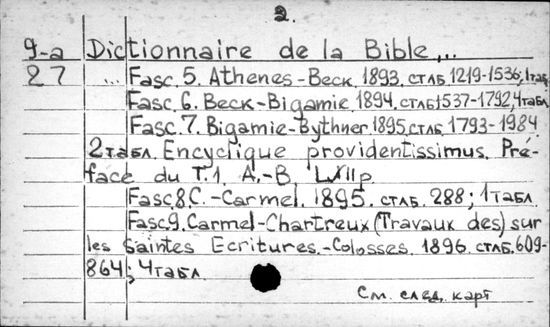 2.
9-a Dictionnaire de la Bible,..
27 ... Fasc. 5. Athenes-Beck 1893. стлб 1219-1536, 1табл.
Fasc. 6. Beck-Bigamie 1894. стлб 1537-1792, 4табл.
Fasc. 7. Bigamie-Bythner 1895. стлб. 1793-1984
2табл. Encyclique providentissimus. Pré-
face du T.1. A.-B. p.
Fasc. 8. C.-Carmel. 1895. стлб. 288; 1табл.
Fasc. 9. Carmel-Chartreux (Travaux des) sur
les Saintes Ecritures.-Colosses. 1896. стлб. 609-
864; 4табл
См. след. карт